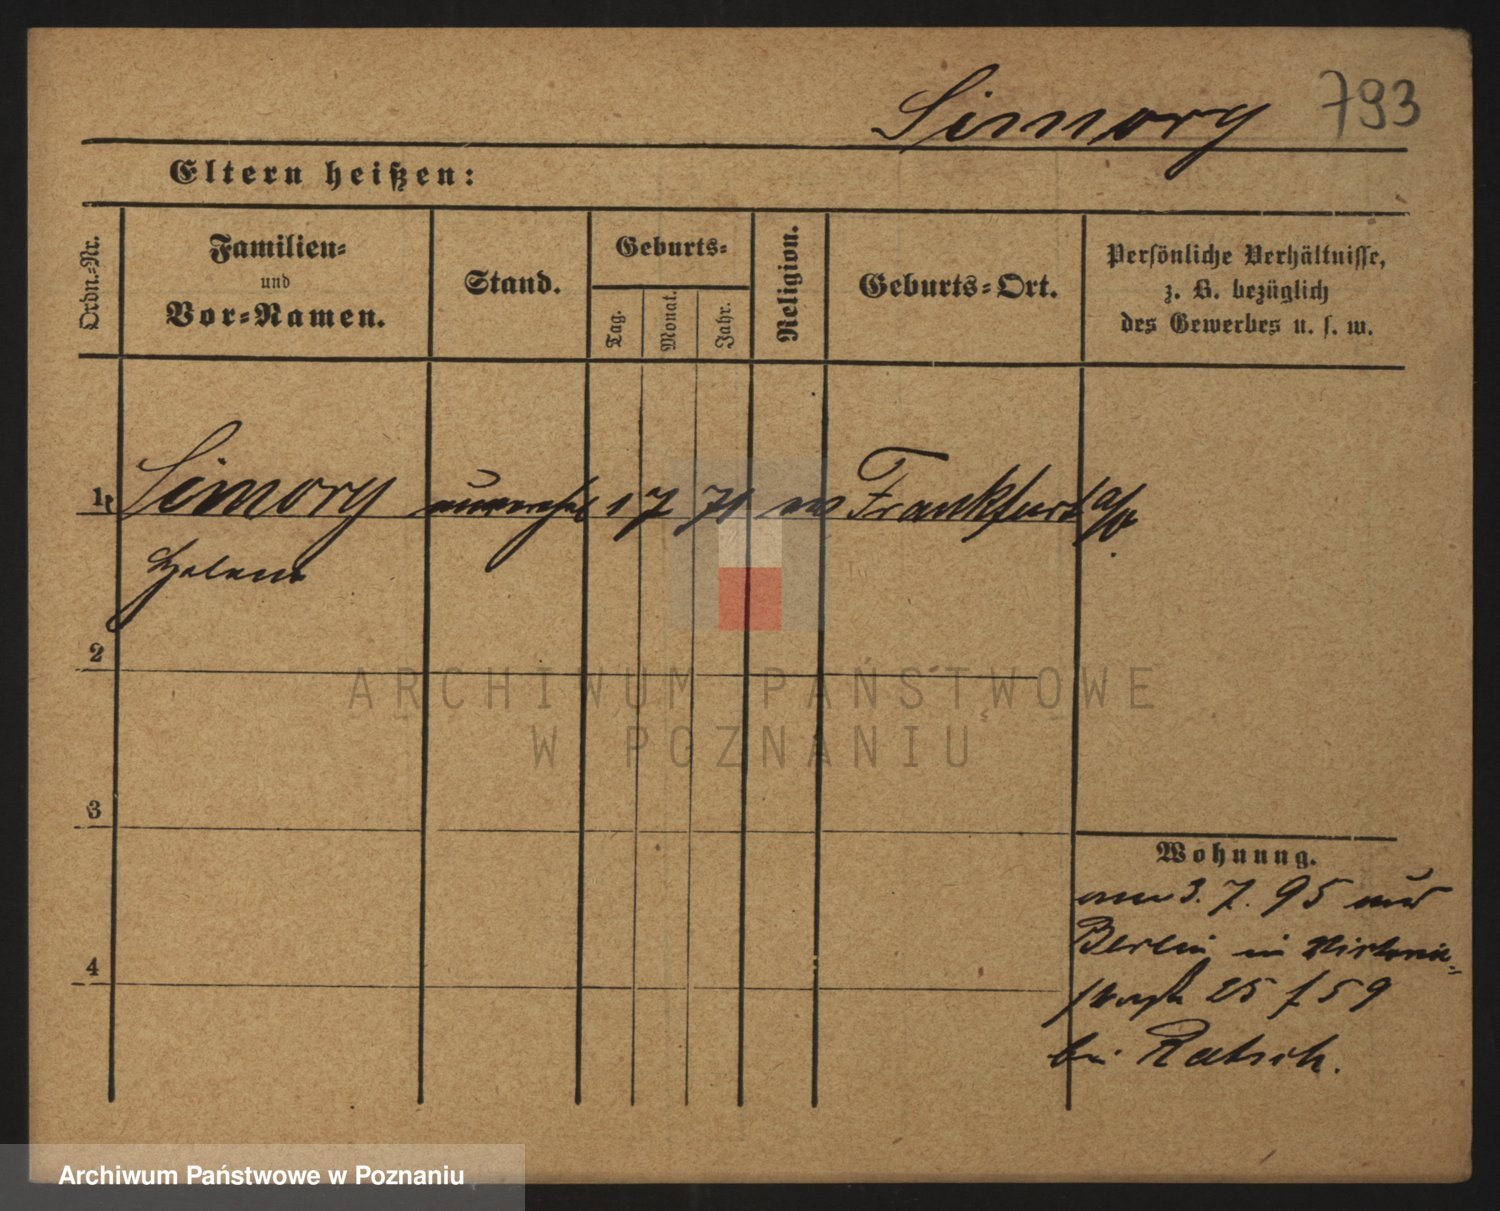 Simory 793
Eltern heißen:
Ordn.=Nr.
Familien=
und
Vor=Namen.
Stand.
Geburts=
Tag.
Monat.
Jahr.
Religion.
Geburts=Ort.
Persönliche Verhältnisse,
z. B. bezüglich
des Gewerbes u. s. w.
1 Simory 1 7 71 Frankfurt a/O.
Helene
2
ARCHIWUM PAŃSTWOWE
W POZNANIU
3
Wohnung.
3. 7. 95
Berlin in
4
25
bei Ratsch.
Archiwum Państwowe w Poznaniu